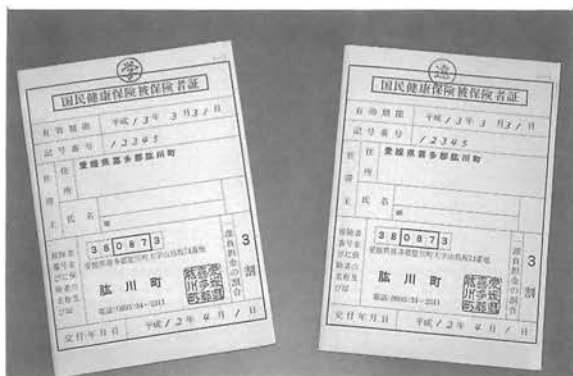 学
国民健康保険被保険者証
有効期限 平成13年3月31日
記号番号 12345
世帯主 住所 愛媛県喜多郡肱川町
氏名
保険者番号並びに保険者の名称及び印
380873
愛媛県喜多郡肱川町大字山鳥坂74番地
肱川町
電話(0893)34-2311
一部負担金の割合 3割
交付年月日 平成12年4月1日
遠
国民健康保険被保険者証
有効期限 平成13年3月31日
記号番号 12345
世帯主 住所 愛媛県喜多郡肱川町
氏名
保険者番号並びに保険者の名称及び印
380873
愛媛県喜多郡肱川町大字山鳥坂74番地
肱川町
電話(0893)34-2311
一部負担金の割合 3割
交付年月日 平成12年4月1日